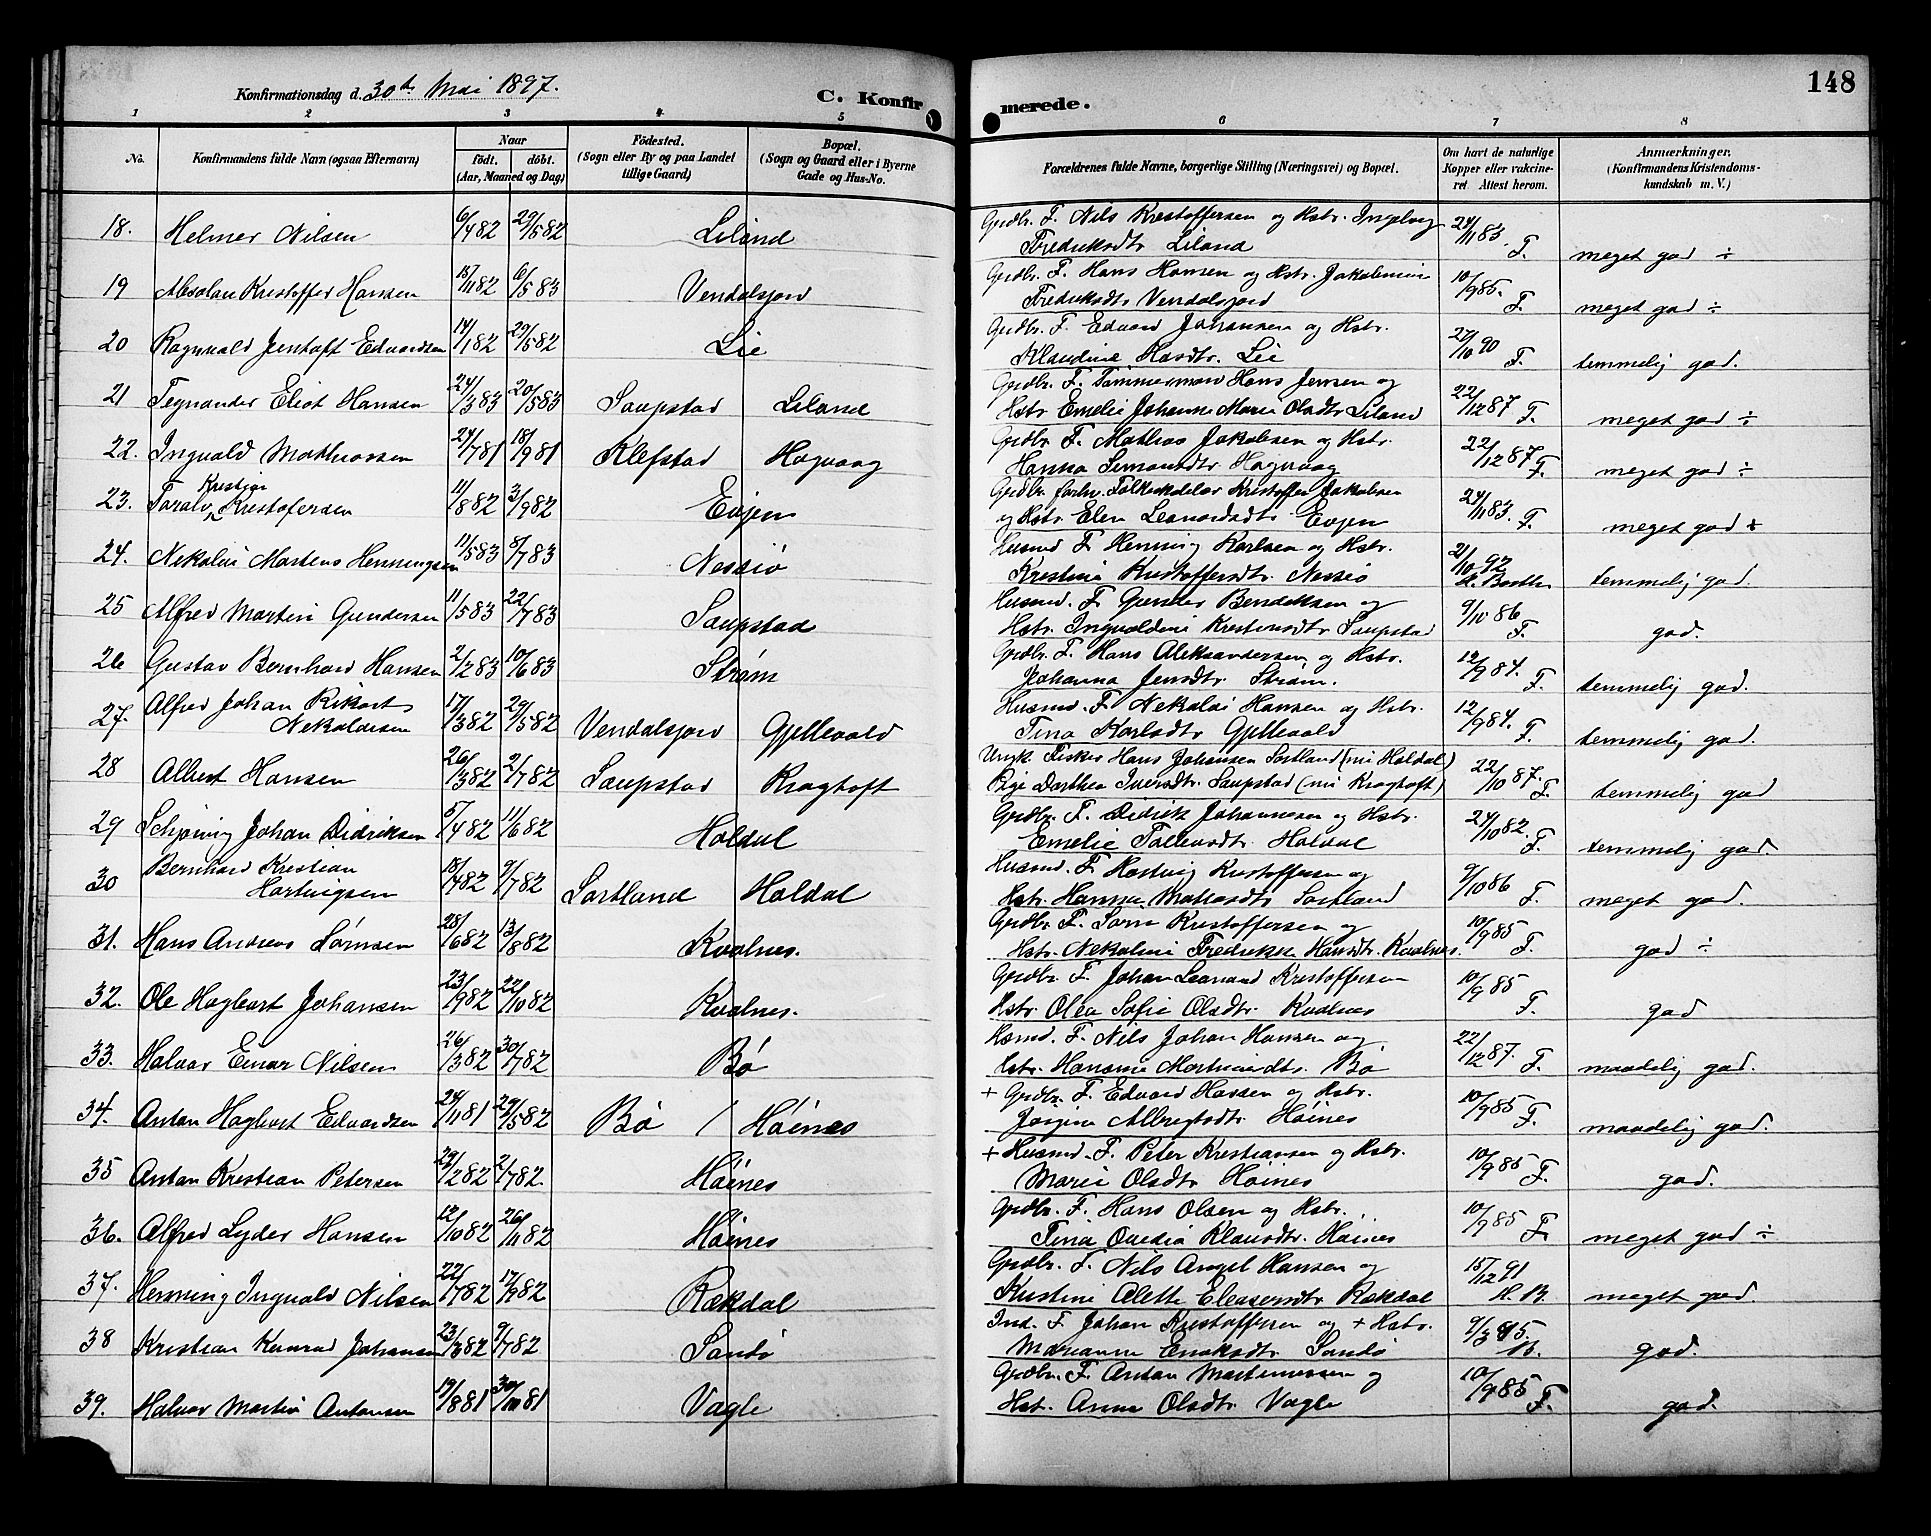 148
Konfirmationsdag d. 30te Mai 1897.
C. Konfirmerede.
1 2 3 4 5 6 7 8
No.
Konfirmandens fulde Navn (ogsaa Efternavn)
Naar
födt. döbt.
(Aar, Maaned og Dag)
Födested.
(Sogn eller By og paa Landet
tillige Gaard)
Bopæl.
(Sogn og Gaard eller i Byerne
Gade og Hus-No.
Forældrenes fulde Navne, borgerlige Stilling (Næringsvei) og Bopæl.
Om havt de naturlige
Kopper eller vakcine-
ret. Attest herom.
Anmærkninger,
(Konfirmandens Kristendoms-
kundskab m. V.)
18. Helmer Nilsen 6/4 82 29/5 82 Liland Grdbr. F. Nils Krestoffersen og Hstr. Ingeborg
Fredriksdtr Liland 24/11 83. F. meget god ÷
19 Absolon Krestoffer Hansen 18/11 82 6/5 83 Vendalsjord Grdbr. F. Hans Hansen og Hstr. Jakobmine
Fredriksdtr Vendalsjord 10/9 85. F. meget god ÷
20 Ragnvald Jentoft Edvardsen 14/1 82 29/5 82 Lie Grdbr. F. Edvard Johansen og Hstr.
Klaudine Hansdtr. Lie 27/10 90 F. temmelig god.
21 Tegnander Eliot Hansen 24/3 83 20/5 83 Saupstad Liland Grdbr. F. Tømmerman Hans Jensen og
Hstr Emelie Johanna Marie Olsdtr Liland 22/12 87 F. meget god ÷
22. Ingvald Mathiassen 24/7 81 18/9 81 Klefstad Hagvaag Grdbr. F. Mathias Jakobsen og Hstr.
Hanna Simonsdtr. Hagvaag 22/12 87 F. meget god ÷
23. Toralv Krestian Krestofersen 11/8 82 3/9 82 Evjen Grdbr. forhv. Folkeskolelær Kristoffer Jakobsen
og Hstr Elen Leonardsdtr Evjen 24/11 83. F. meget god ÷
24. Nekolai Martens Henningsen 11/5 83 8/7 83 Nessiø Husmd F. Henning Karlsen og Hstr.
Krestine Kristoffersdtr. Nessiø 21/10 92 temmelig god.
25 Alfred Martin Gundersen 11/5 83 22/7 83 Saupstad Husmd. F. Gunder Bendiksen og
Hstr. Ingvoldine Krestensdtr Saupstad 9/10 86 F. god.
26 Gustav Bernhard Hansen 2/2 83 10/6 83 Strøm Grdbr. F. Hans Aleksandersen og Hstr.
Johanna Jensdtr. Strøm. 12/9 84. F. temmelig god.
27. Alfred Johan Rikart
Nekolaisen 17/3 82 29/5 82 Vendalsjord Gjellevold Husmd. F. Nekolai Hansen og Hstr.
Tina Karlsdtr Gjellevold 12/9 84. F. temmelig god.
28 Albert Hansen 26/3 82 2/7 82 Saupstad Kragtoft Ungk. Fisker Hans Johansen Sortland (nu Holdal)
Pige Dorthea Iversdtr. Saupstad (nu Kragtoft) 22/10 87. F. temmelig god
29 Schjøning Johan Didriksen 5/4 82 11/6 82 Holdal Grdbr. F. Didrik Johannesen og Hstr.
Emelie Tollevsdtr Holdal 24/10 82. F. temmelig god.
30 Bernhard Krestian
Hartvigsen 18/4 82 9/7 82 Sortland Holdal Husmd. F. Hartvig Kristoffersen og
Hstr. Hanna Matiasdtr Sortland 9/10 86 F. meget god.
31. Hans Andreas Sørnsen 28/6 82 13/8 82 Kvalnes. Grdbr. F. Sørn Kristoffersen og
Hstr. Nekoline Fredrikke Hansdtr. Kvalnes. 10/9 85 F. god ÷
32. Ole Hagbart Johansen 23/9 82 22/10 82 Kvalnes. Grdbr. F. Johan Leonard Kristoffersen
Hstr. Olea Sofie Olsdtr. Kvalnes 10/9 85 F. god
33. Halvar Einar Nilsen 26/3 82 30/7 82 Bø Husmd. F. Nils Johan Hansen og
Hstr. Hansine Martinusdtr. Bø 22/12 87. F. maadelig god.
34. Anton Hagbart Edvardsen 24/11 81 29/5 82 Bø / Høines + Grdbr. F. Edvard Hansen og Hstr.
Jørgine Albregtsdtr. Høines 10/9 85 F. maadelig god.
35 Anton Krestian Petersen 24/2 82 2/7 82. Høines + Husmd. F. Peter Krestiansen og Hstr.
Marie Olsdtr Høines 10/9 85 F. god.
36. Alfred Lyder Hansen 12/10 82 26/11 82 Høines Grdbr. F. Hans Olsen og Hstr.
Tina Ovedia Klausdtr. Høines 10/9 85 F. meget god ÷
37. Henning Ingvald Nilsen 22/7 82 17/9 82 Rækdal Grdbr. F. Nils Angel Hansen og
Kristine Alette Eleasersdtr. Rækdal 15/12 91 H. B. meget god.
38 Kristian Konrad Johansen 23/3 82 9/7 82 Sandø Ind. F. Johan Kristoffersen og + Hstr.
Marianne Enoksdtr Sandø 9/3 95. god.
39. Halvar Martin Antonsen 19/8 81 30/10 81 Vagle Grdbr. F. Anton Martinussen og
Hstr. Anna Olsdtr. Vagle 10/9 85 F. god.